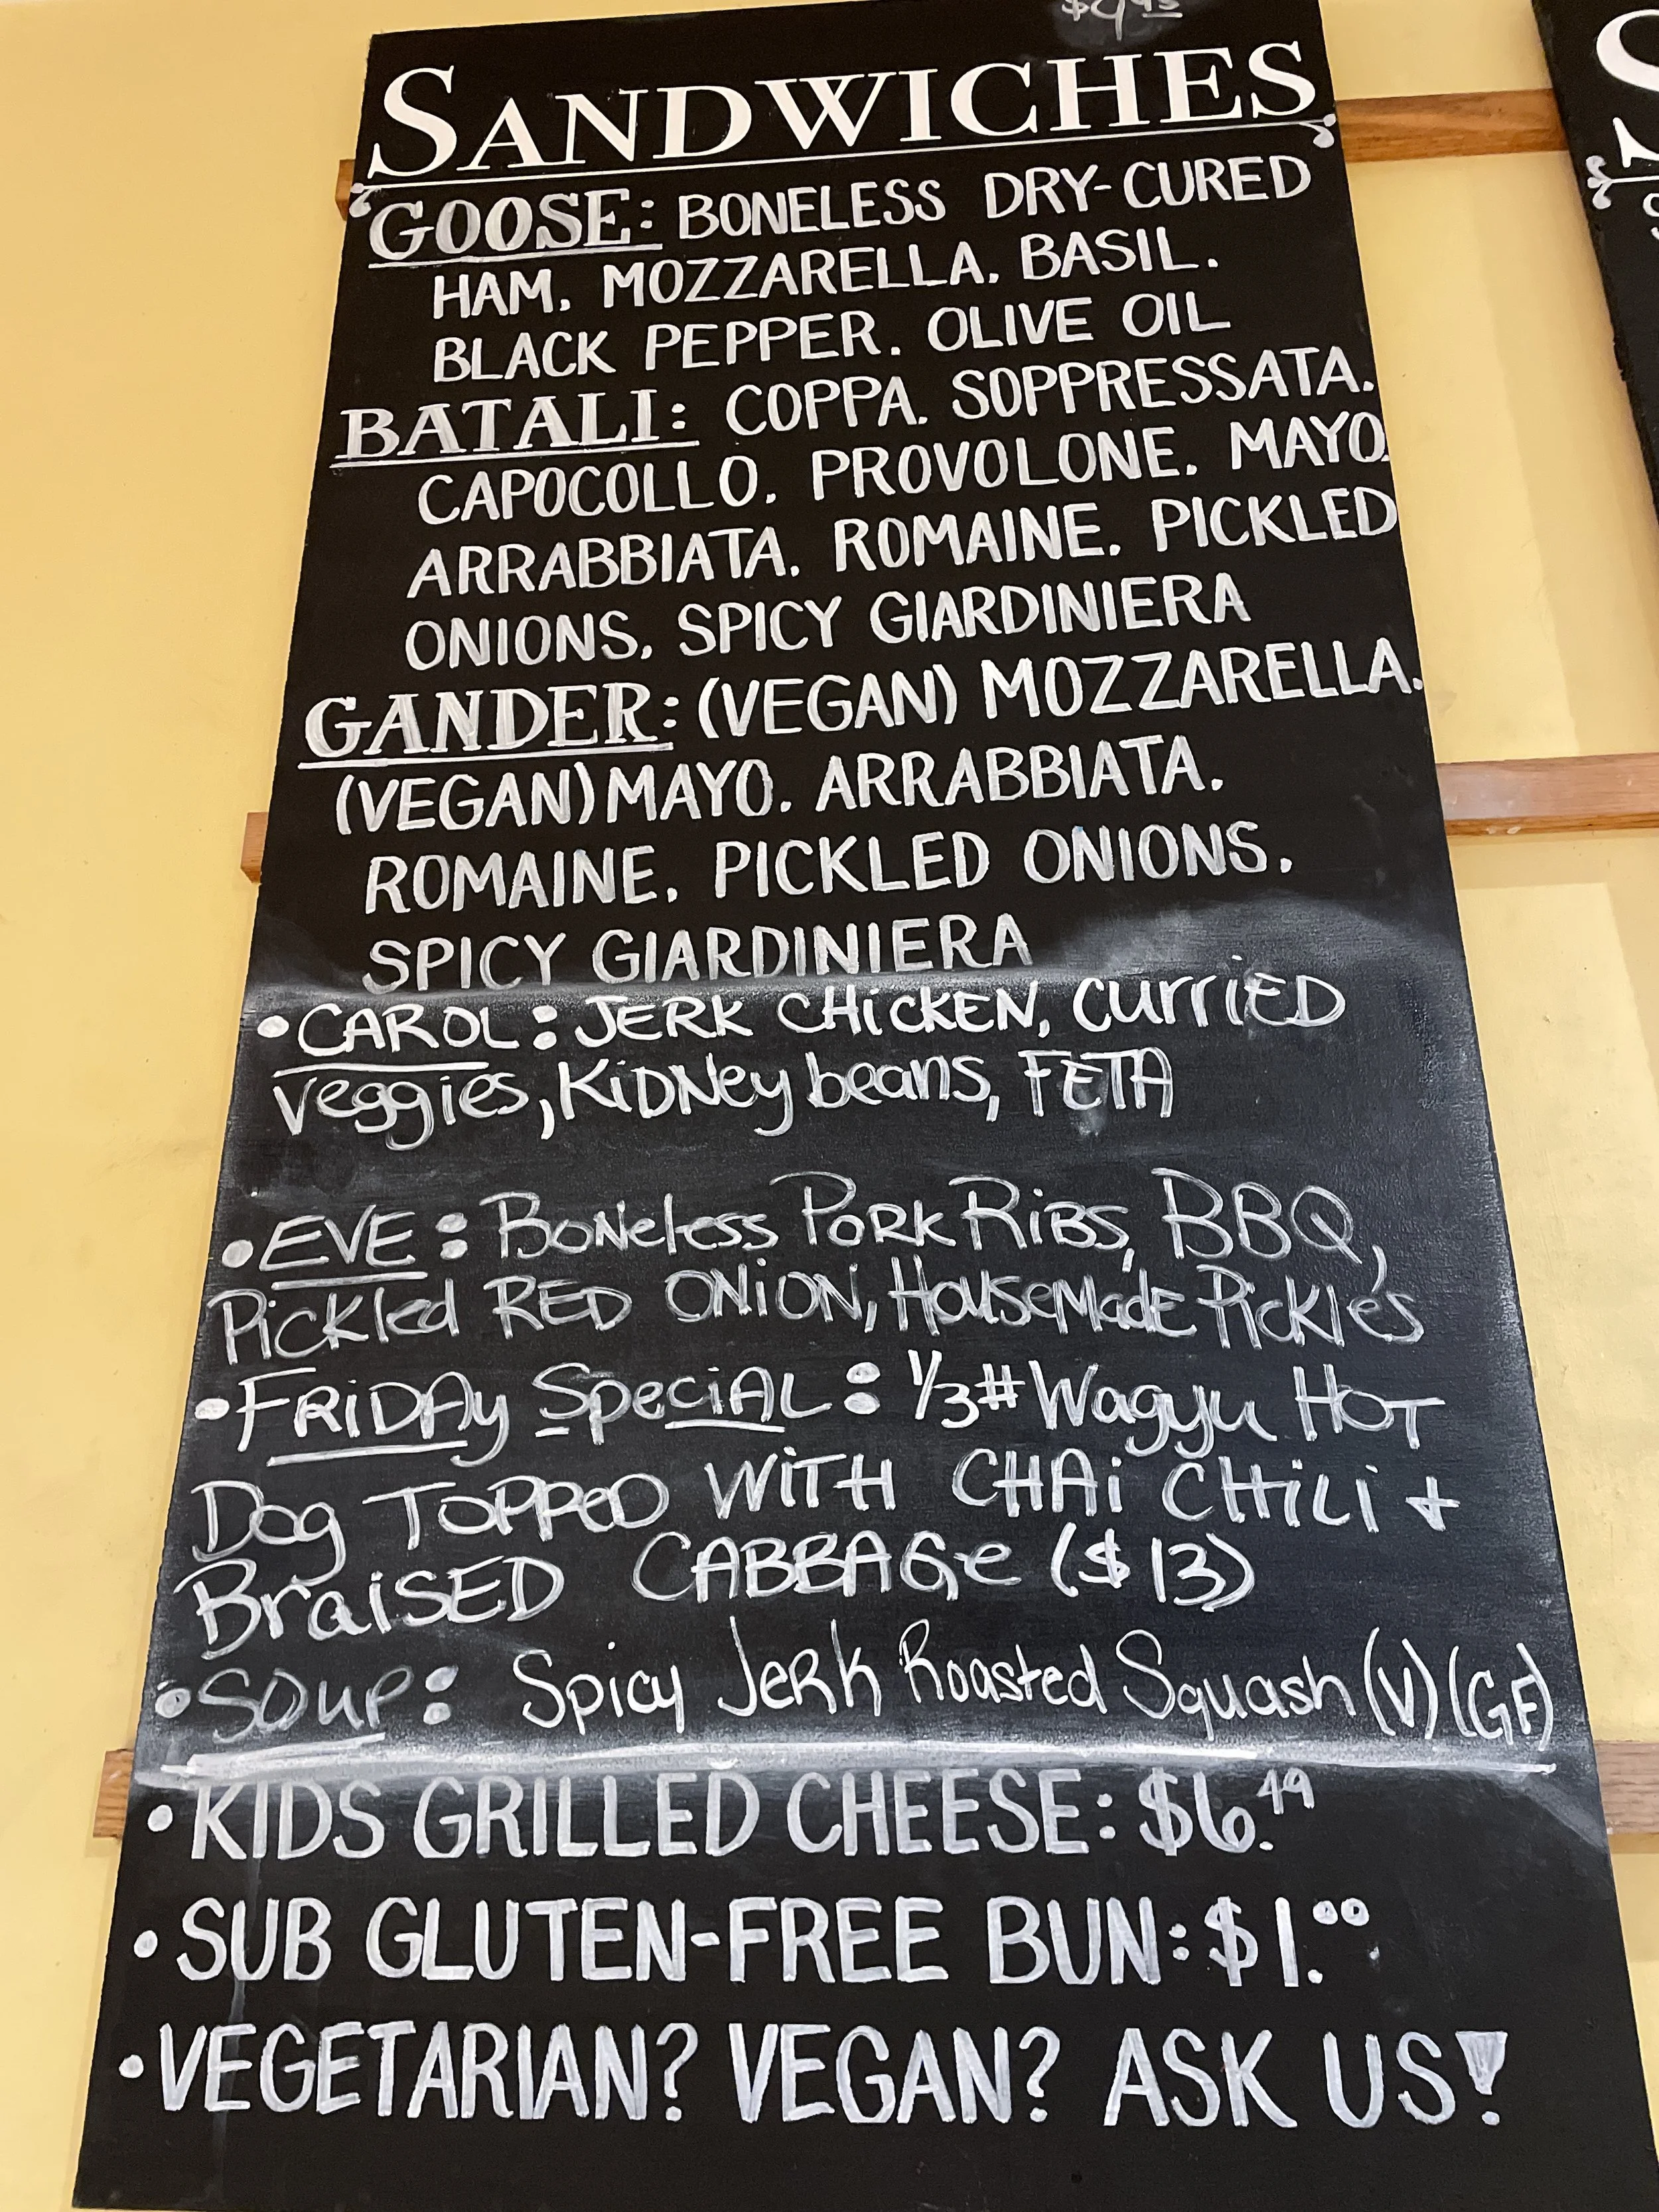 SANDWICHES
GOOSE: BONELESS DRY-CURED
HAM. MOZZARELLA. BASIL.
BLACK PEPPER. OLIVE OIL
BATALI: COPPA. SOPPRESSATA.
CAPOCOLLO. PROVOLONE. MAYO.
ARRABBIATA. ROMAINE. PICKLED
ONIONS. SPICY GIARDINIERA
GANDER: (VEGAN) MOZZARELLA.
(VEGAN) MAYO. ARRABBIATA.
ROMAINE. PICKLED ONIONS.
SPICY GIARDINIERA
•CAROL: JERK CHiCKEN, CurriED
veggies, KiDNey beans, FETA
•EVE: BoNeless PORK RiBS, BBQ,
Pickled RED ONiON, HouseMade Pickles
•FRiDAy SpeciAL: 1/3# Wagyu HOT
Dog TOPPeD WiTH CHAi CHiLi +
BraiSED CABBAGe ($13)
•SOup: Spicy JeRk Roasted Squash (V) (GF)
•KIDS GRILLED CHEESE: $6.49
•SUB GLUTEN-FREE BUN: $1.00
•VEGETARIAN? VEGAN? ASK US!